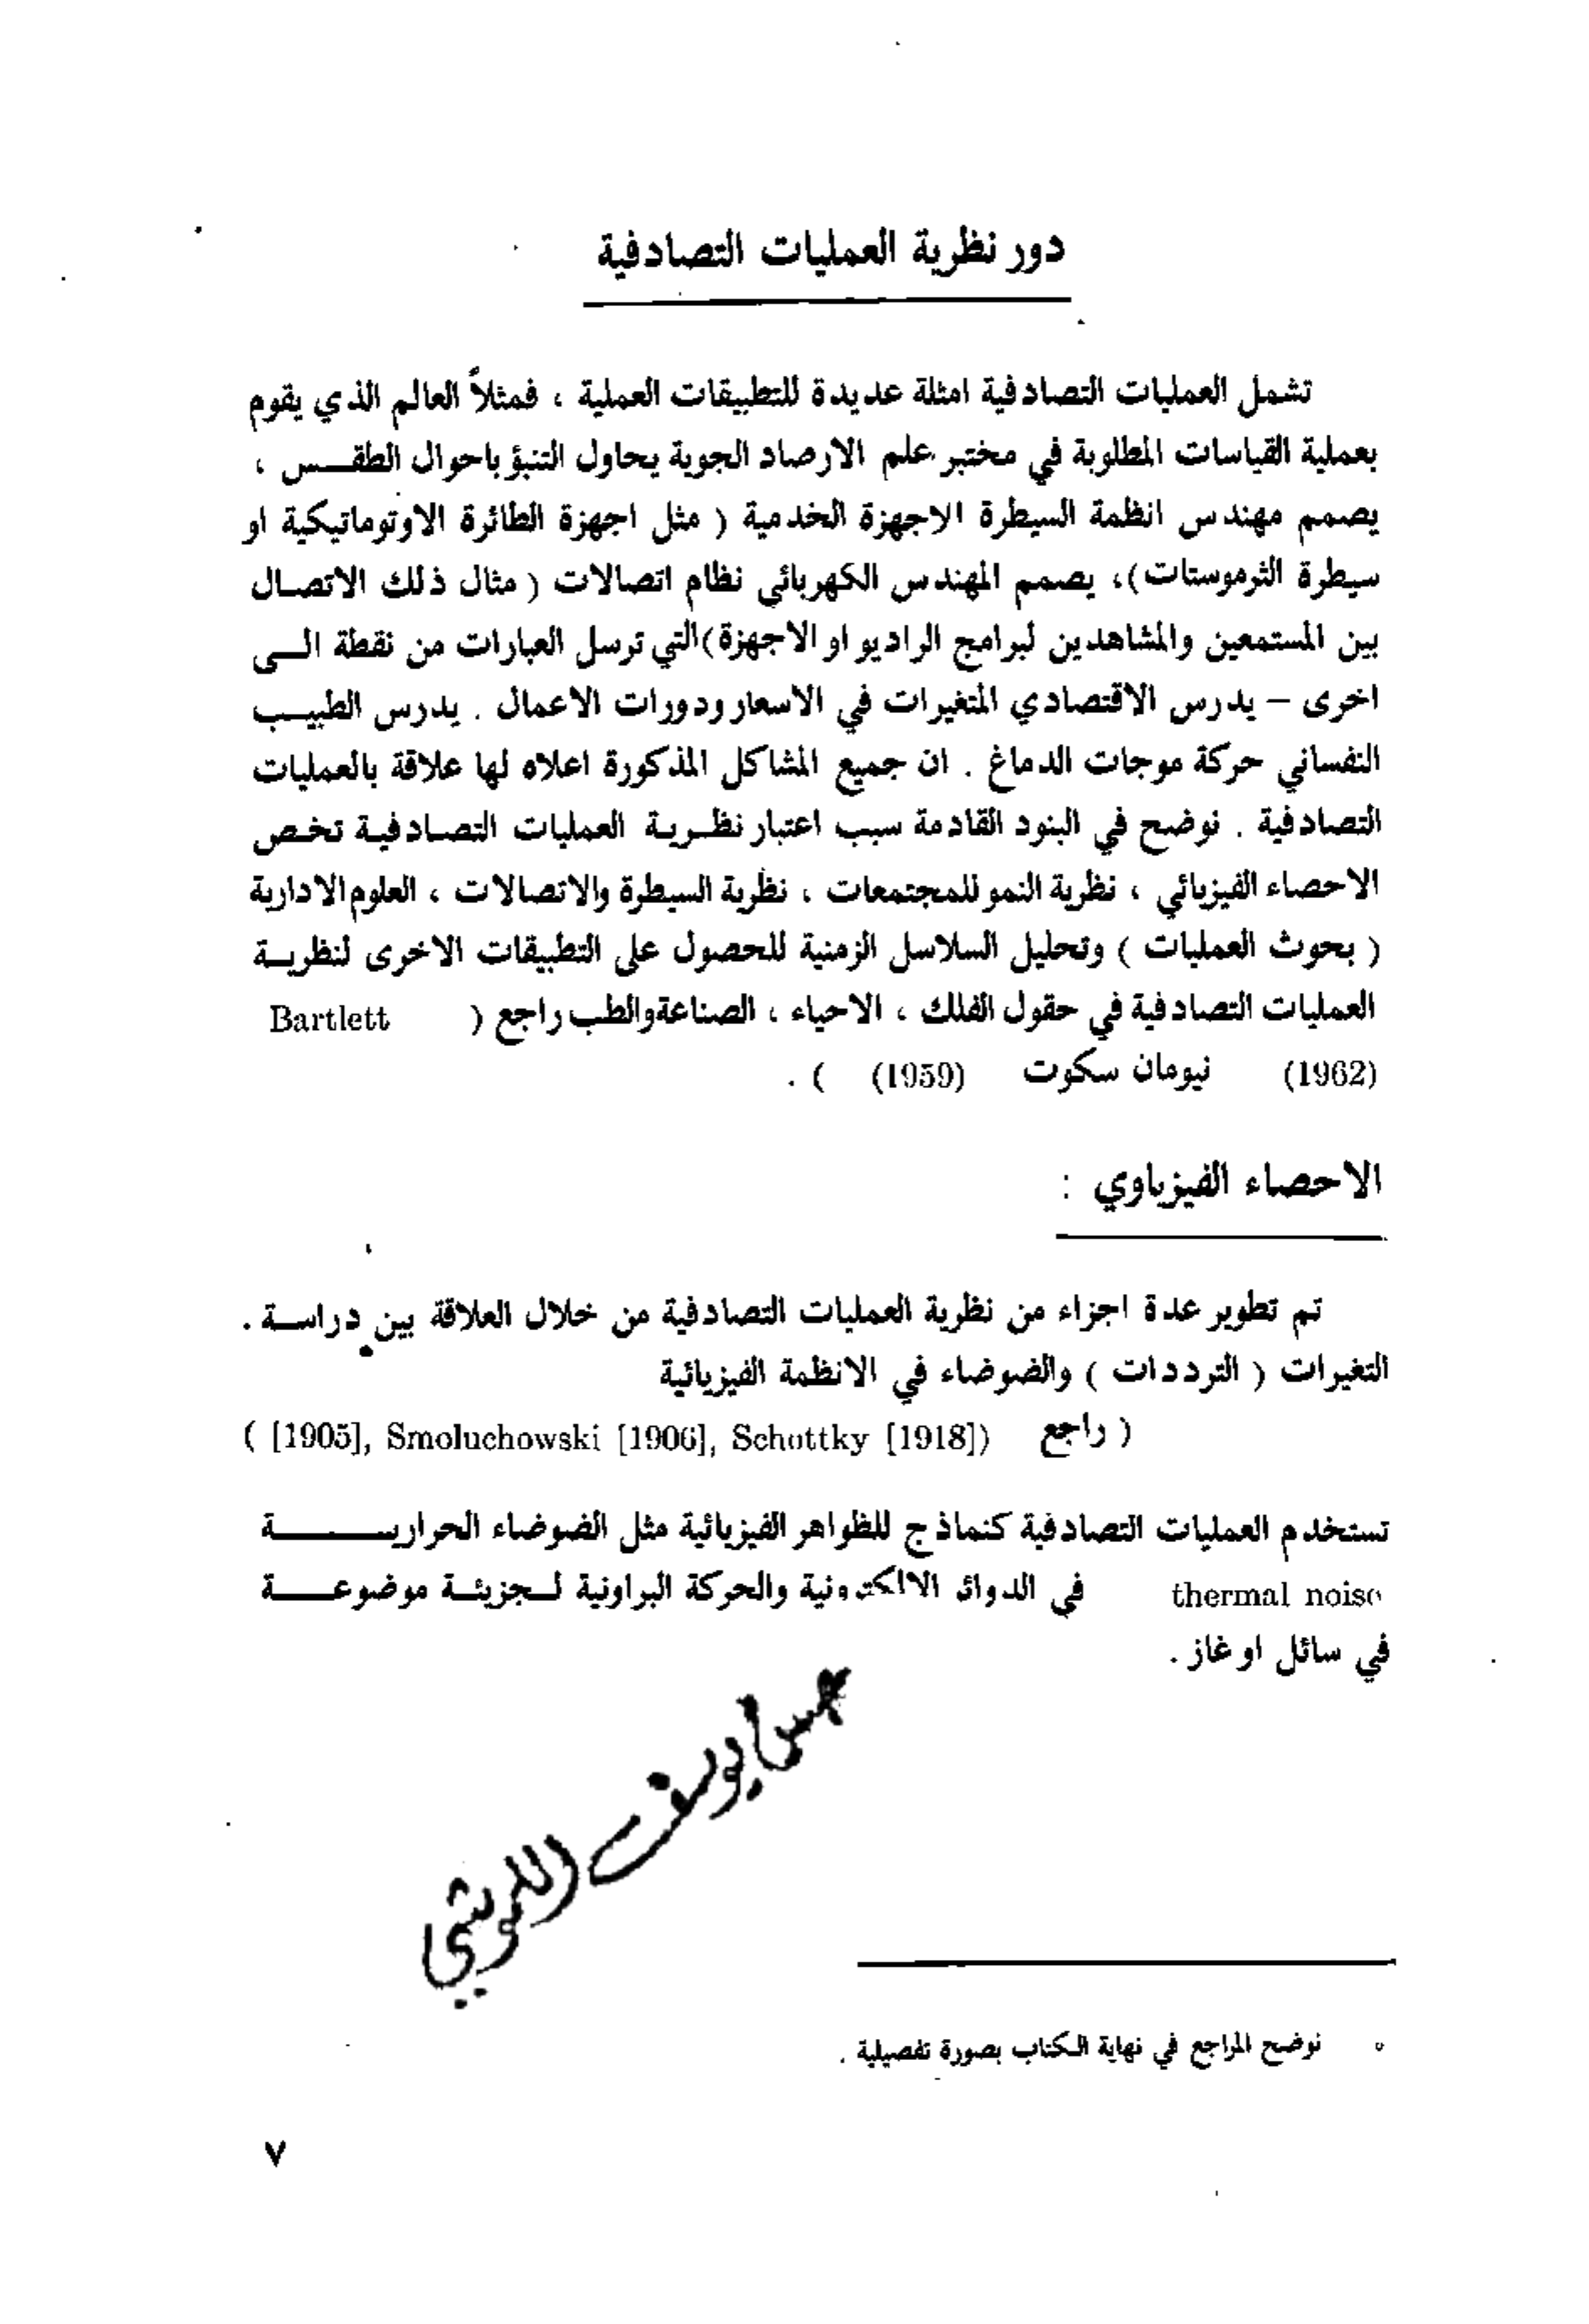 دور نظرية العمليات التصادفية
تشمل العمليات التصادفية امثلة عديدة للتطبيقات العملية ، فمثلاً العالم الذي يقوم
بعملية القياسات المطلوبة في مختبر علم الارصاد الجوية يحاول التنبؤ باحوال الطقس ،
يصمم مهندس انظمة السيطرة الاجهزة الخدمية ( مثل اجهزة الطائرة الاوتوماتيكية او
سيطرة الثرموستات)، يصمم المهندس الكهربائي نظام اتصالات ( مثال ذلك الاتصال
بين المستمعين والمشاهدين لبرامج الراديو او الاجهزة)التي ترسل العبارات من نقطة الى
اخرى – يدرس الاقتصادي المتغيرات في الاسعار ودورات الاعمال . يدرس الطبيب
النفساني حركة موجات الدماغ . ان جميع المشاكل المذكورة اعلاه لها علاقة بالعمليات
التصادفية . نوضح في البنود القادمة سبب اعتبار نظرية العمليات التصادفية تخص
الاحصاء الفيزيائي ، نظرية النمو للمجتمعات ، نظرية السيطرة والاتصالات ، العلوم الادارية
( بحوث العمليات ) وتحليل السلاسل الزمنية للحصول على التطبيقات الاخرى لنظرية
العمليات التصادفية في حقول الفلك ، الاحياء ، الصناعة والطب راجع ( Bartlett
(1962) نيومان سكوت (1959) ) .
الاحصاء الفيزياوي :
تم تطوير عدة اجزاء من نظرية العمليات التصادفية من خلال العلاقة بين دراسة .
التغيرات ( الترددات ) والضوضاء في الانظمة الفيزيائية
( راجع ([1905], Smoluchowski [1906], Schottky [1918]) )
تستخدم العمليات التصادفية كنماذج للظواهر الفيزيائية مثل الضوضاء الحرارية
thermal noise في الدوائر الالكترونية والحركة البراونية لجزيئة موضوعة
في سائل او غاز .
يوسف
° نوضح المراجع في نهاية الكتاب بصورة تفصيلية .
٧